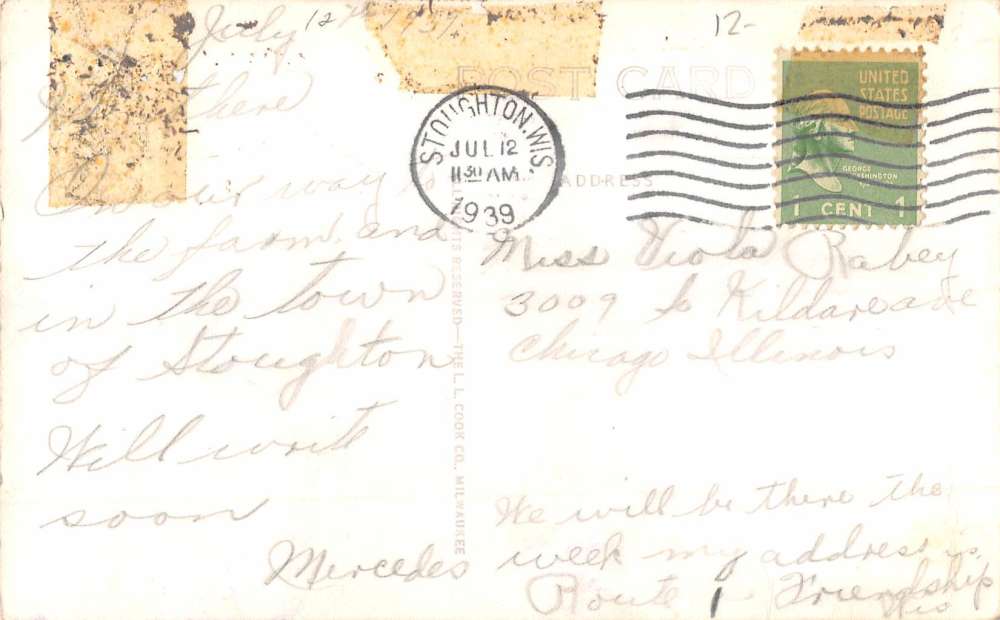 July 12th 1939
12-
POST CARD
UNITED
STATES
POSTAGE
GEORGE
WASHINGTON
1 CENT 1
STOUGHTON, WIS.
JUL 12
11 30 AM
1939
ADDRESS
there
On our way to
the farm, and
in the town
of Stoughton
Will write
soon
Mercedes
RIGHTS RESERVED—THE L. L. COOK CO., MILWAUKEE
Miss Viola Rabey
3009 So Kildare ave
Chicago Illinois
We will be there the
week my address is
Route 1. Friendship
Wis